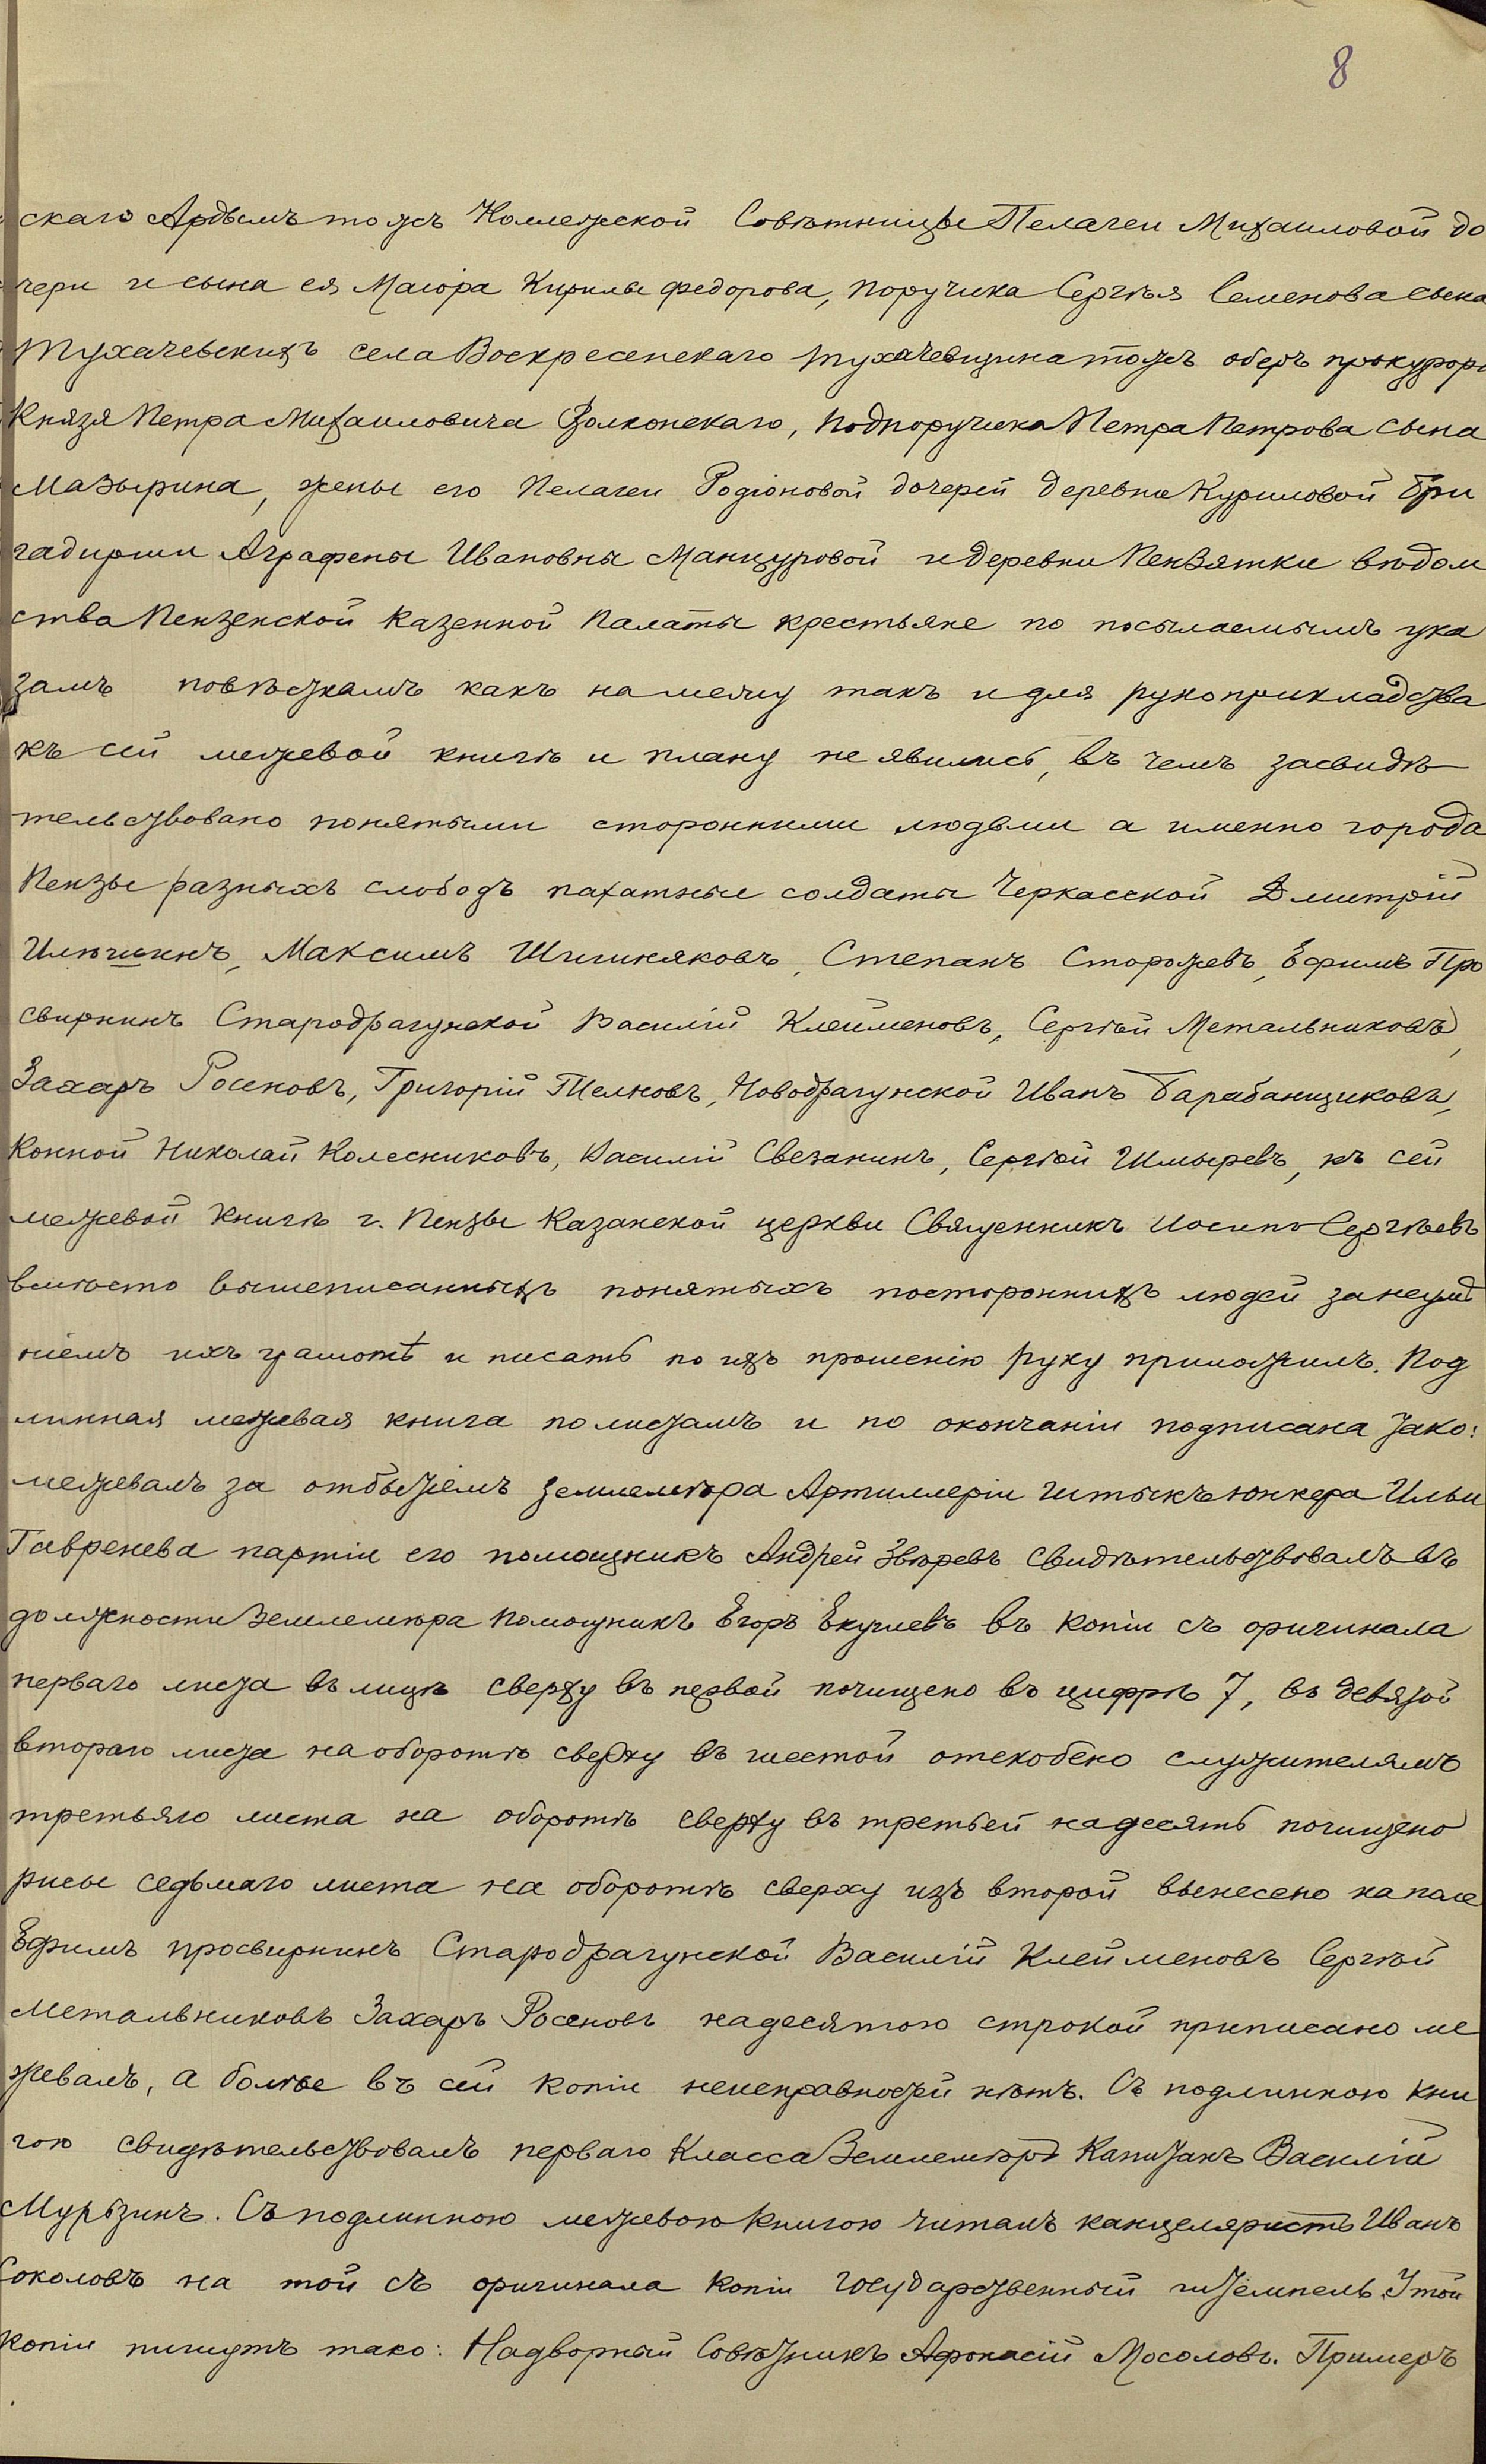 8
скаго Ардымъ тожъ Коллежской Совѣтницы Пелагеи Михаиловой до
чери и сына ея Маіора Кирилы Федорова, поручика Сергѣя Семенова сына
Тухачевскихъ села Воскресенскаго Тухачевщина тожъ оберъ прокурора
Князя Петра Михаиловича Волконскаго, подпоручика Петра Петрова сына
Мазырина, жены его Пелагеи Родіоновой дочерей деревни Куриловой бри
гадирши Аграфены Ивановны Манцуровой и деревни Пензятки вѣдом
ства Пензенской Казенной Палаты крестьяне по посылаемымъ ука
замъ повѣсткамъ какъ на межу такъ и для рукоприкладства
къ сей межевой книгѣ и плану не явились, въ чемъ засвидѣ
тельствовано понятыми сторонними людьми а именно города
Пензы разныхъ слободъ пахатные солдаты Черкасской Дмитрій
Максимъ Шишняковъ, Степанъ Сторожевъ, Ефимъ Про
свирнинъ Стародрагунской Василій Клейменовъ, Сергѣй Метальниковъ,
Захаръ Росеновъ, Григорій Телновъ, Новодрагунской Иванъ Барабанщиковъ,
Конной Николай Колесниковъ, Василій Свезанинъ, Сергѣй Шмыревъ, къ сей
межевой книгѣ г. Пензы Казанской церкви Священникъ Иосипъ Сергѣевъ
вмѣсто вышеписанныхъ понятыхъ постороннихъ людей за неумѣ
ніемъ ихъ грамотѣ и писать по ихъ прошенію руку приложилъ. Под
линная межевая книга по листамъ и по окончаніи подписана тако:
межевалъ за отбытіемъ землемѣра Артиллеріи штыкъ юнкера Ильи
Гавренева партіи его помощникъ Андрей Звѣревъ свидѣтельствовалъ въ
должности Землемѣра помощникъ Егоръ Екучевъ въ копіи съ оригинала
перваго листа въ лицѣ сверху въ первой почищено въ цифрѣ 7, въ девятой
втораго листа на оборотѣ сверху въ шестой отскобено служителямъ
третьяго листа на оборотѣ сверху въ третьей надесять почищено
рисы седьмаго листа на оборотѣ сверху изъ второй вынесено на поле
Ефимъ просвирнинъ Стародрагунской Василій Клейменовъ Сергѣй
Метальниковъ Захаръ Росеновъ надесятою строкой приписано ме
жевалъ, а болѣе въ сей копіи неисправностей нѣтъ. Съ подлинною кни
гою свидѣтельствовалъ перваго Класса Землемѣръ Капитанъ Василій
Мурзинъ. Съ подлинною межевою книгою читалъ канцеляристъ Иванъ
Соколовъ на той съ оригинала копіи Государственный штемпель. У той
копіи пишутъ тако: Надворный Совѣтникъ Афонасій Мосоловъ. Примеръ